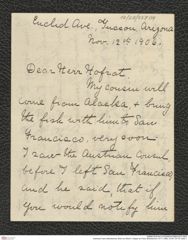 Euclid Ave. Tucson, Arizona
Nov. 12th 1906.
Dear Herr Hofrat.
My cousin will
come from Alaska & bring
the fish with him to San
Francisco, very soon.
I saw the Austrian Consul
before I left San Francisco,
and he said, that if
you would notify him